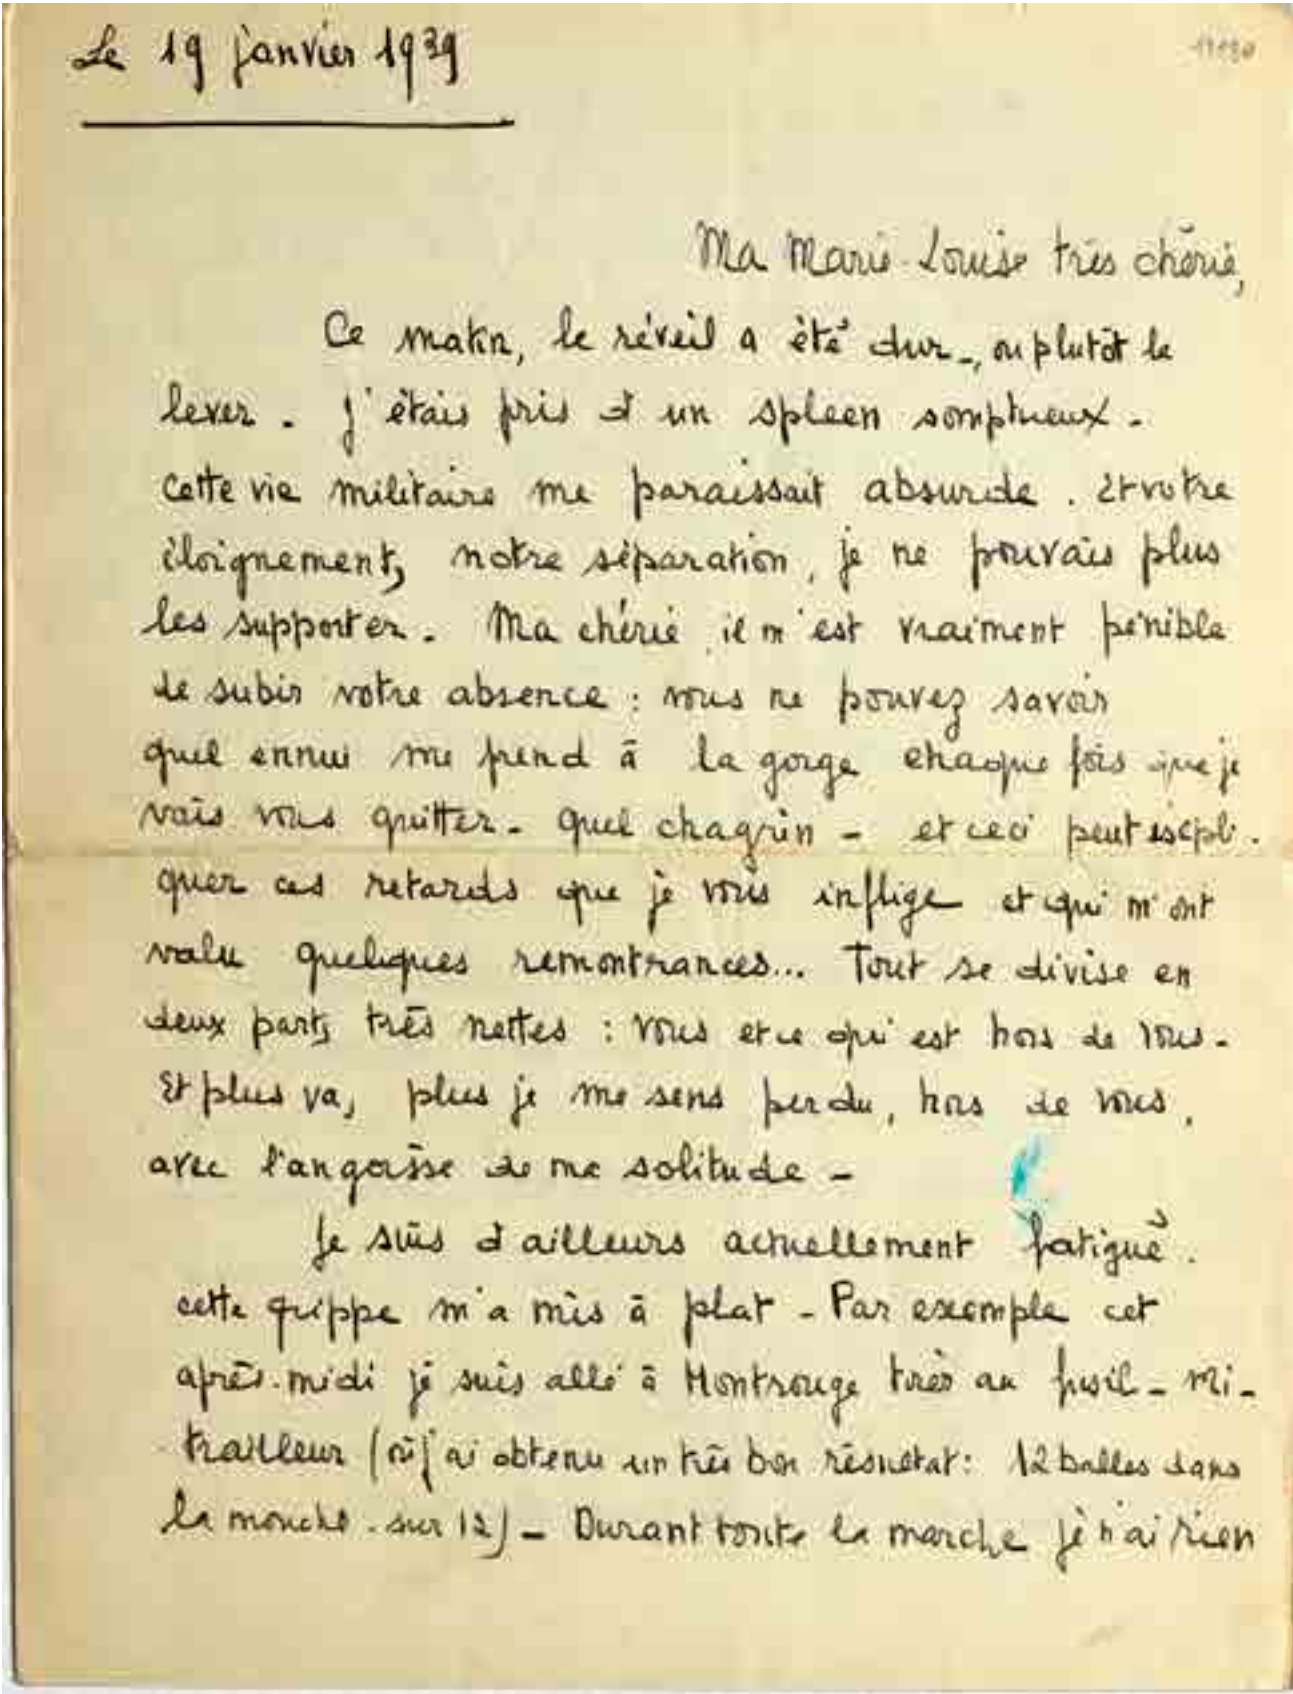 Le 19 janvier 1939
Ma Marie-Louise très chérie,
Ce matin, le réveil a été dur -, ou plutôt le
lever - J'étais pris d'un spleen somptueux -
cette vie militaire me paraissait absurde. Et votre
éloignement, notre séparation, je ne pouvais plus
les supporter. Ma chérie, il m'est vraiment pénible
de subir votre absence : vous ne pouvez savoir
quel ennui me prend à la gorge chaque fois que je
vais vous quitter - quel chagrin - et ceci peut expli-
quer ces retards que je vous inflige et qui m'ont
valu quelques remontrances... Tout se divise en
deux parts très nettes : vous et ce qui est hors de vous -
Et plus va, plus je me sens perdu, hors de vous,
avec l'angoisse de ma solitude -
Je suis d'ailleurs actuellement fatigué.
cette grippe m'a mis à plat - Par exemple cet
après-midi je suis allé à Montrouge tirer au fusil-mi-
trailleur (où j'ai obtenu un très bon résultat : 12 balles dans
la mouche - sur 12) - Durant toute la marche je n'ai rien